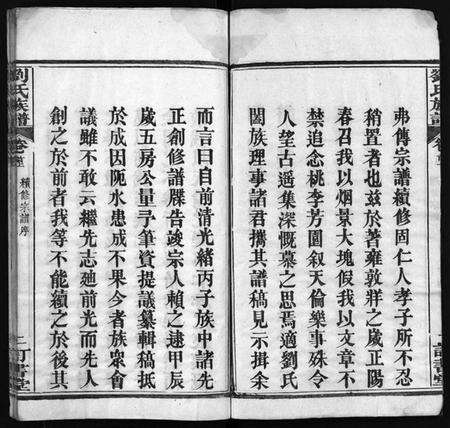 弗傳宗譜續修固仁人孝子所不忍
稍置者也茲於著雍敦牂之歲正陽
春召我以烟景大塊假我以文章不
禁追念桃李芳園叙天倫樂事殊令
人望古遥集深慨慕之思焉適劉氏
闔族理事諸君攜其譜稿見示揖余
而言曰自前清光緒丙子族中諸先
正創修譜牒告竣宗人賴之逮甲辰
歲五房公量予筆資提議纂輯稿抵
於成因阨水患成不果今者族眾會
議雖不敢云繼先志廸前光而先人
創之於前者我等不能續之於後其
劉氏族譜
卷首
續修宗譜序
劉氏族譜